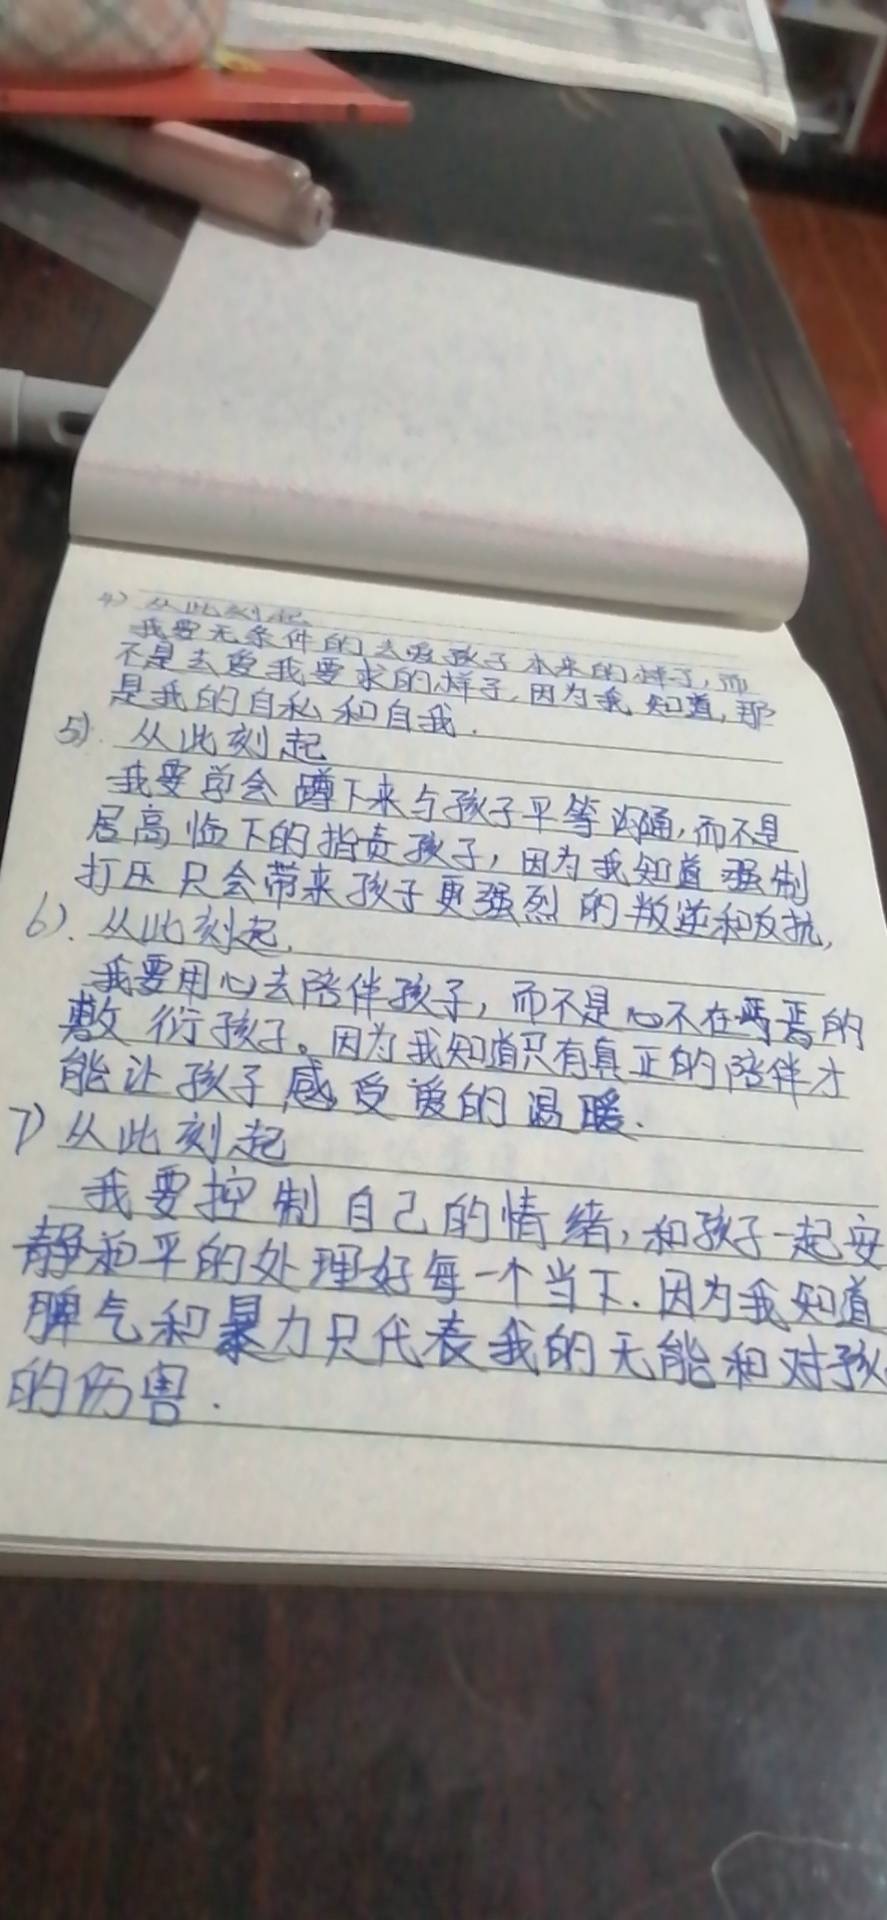 4) 从此刻起
我要无条件的去爱孩子本来的样子,而
不是去爱我要求的样子,因为我知道,那
是我的自私和自我.
5). 从此刻起
我要学会蹲下来与孩子平等沟通,而不是
居高临下的指责孩子,因为我知道强制
打压只会带来孩子更强烈的叛逆和反抗,
6). 从此刻起,
我要用心去陪伴孩子,而不是心不在焉的
敷衍孩子。因为我知道只有真正的陪伴才
能让孩子感受爱的温暖.
7) 从此刻起
我要控制自己的情绪,和孩子一起安
静和平的处理好每一个当下.因为我知道
脾气和暴力只代表我的无能和对孩
的伤害.